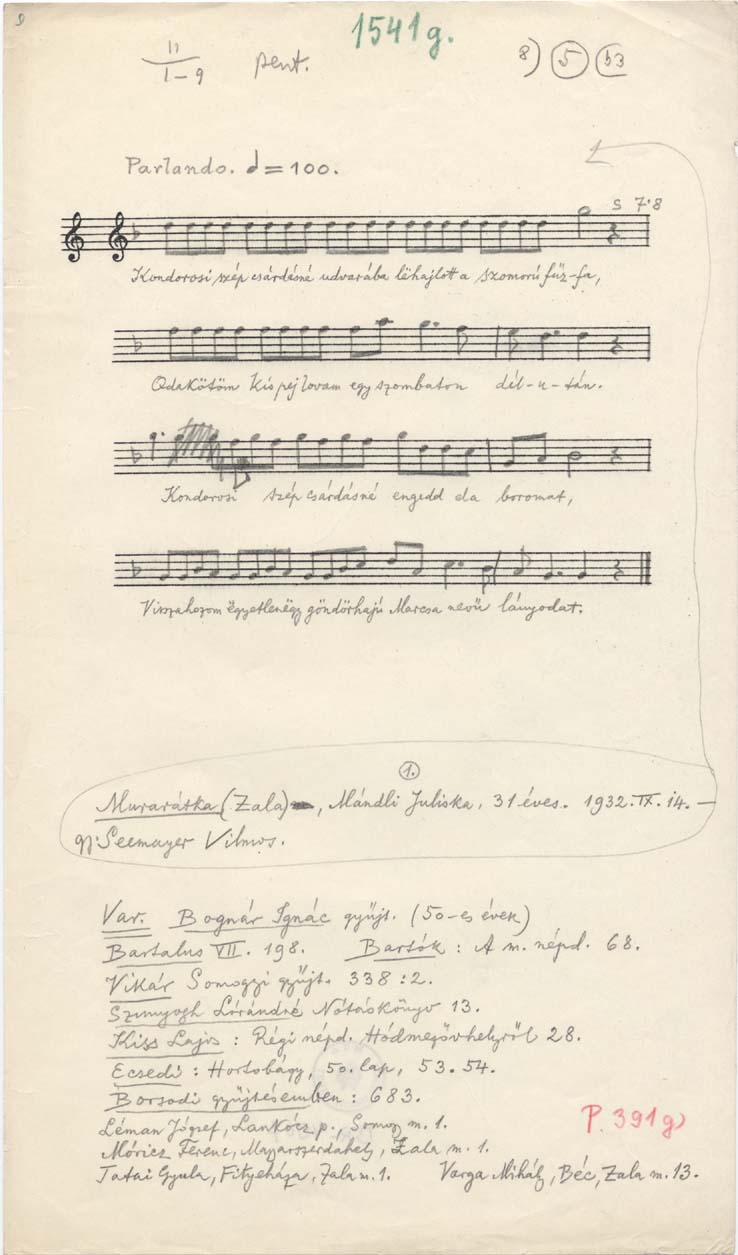 1541g.
II
I-9 pent. 8) 5 b3
Parlando. = 100.
S 7·8
Kondorosi szép csárdásné udvarába lëhajlott a szomorú fűz-fa,
Odakötöm kis pej lovam egy szombaton dél-u-tán.
Kondorosi szép csárdásné engedd el a boromat,
Visszahozom ëgyetlenëgy göndörhajú Marcsa nevű lányodat.
1.
Murarátka (Zala), Mándli Juliska, 31 éves. 1932. IX. 14. –
gy: Seemayer Vilmos.
Var. Bognár Ignác gyűjt. (50-es évek)
Bartalus VII. 198. Bartók: A m. népd. 68.
Vikár Somogyi gyűjt. 338:2.
Szunyogh Lórándné Nótáskönyv 13.
Kiss Lajos: Régi népd. Hódmezővhelyről 28.
Ecsedi: Hortobágy, 50. lap, 53. 54.
Borsodi gyűjtésemben: 683.
P. 391g
Léman József, Lankócz p., Somogy m. 1.
Móricz Ferenc, Magyarszerdahely, Zala m. 1.
Tatai Gyula, Fityeháza, Zala m. 1. Varga Mihály, Béc, Zala m. 13.